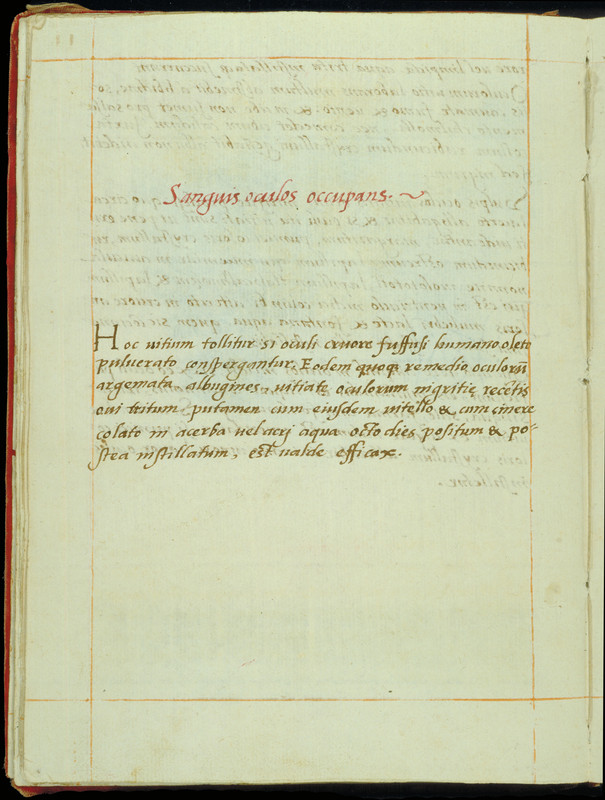 Sanguis oculos occupans.
Hoc uitium tollitur si oculi cruore suffusi humano oleto
puluerato conspergantur. Eodem quoq; remedio oculorũ
argemata, albugines, uitiatę oculorum nigritię recẽtis
oui tritum putamen cum eiusdem uitello & cum cinere
colato in acerba uel acri aqua octo dies positum & po-
stea instillatum, est ualde efficax.